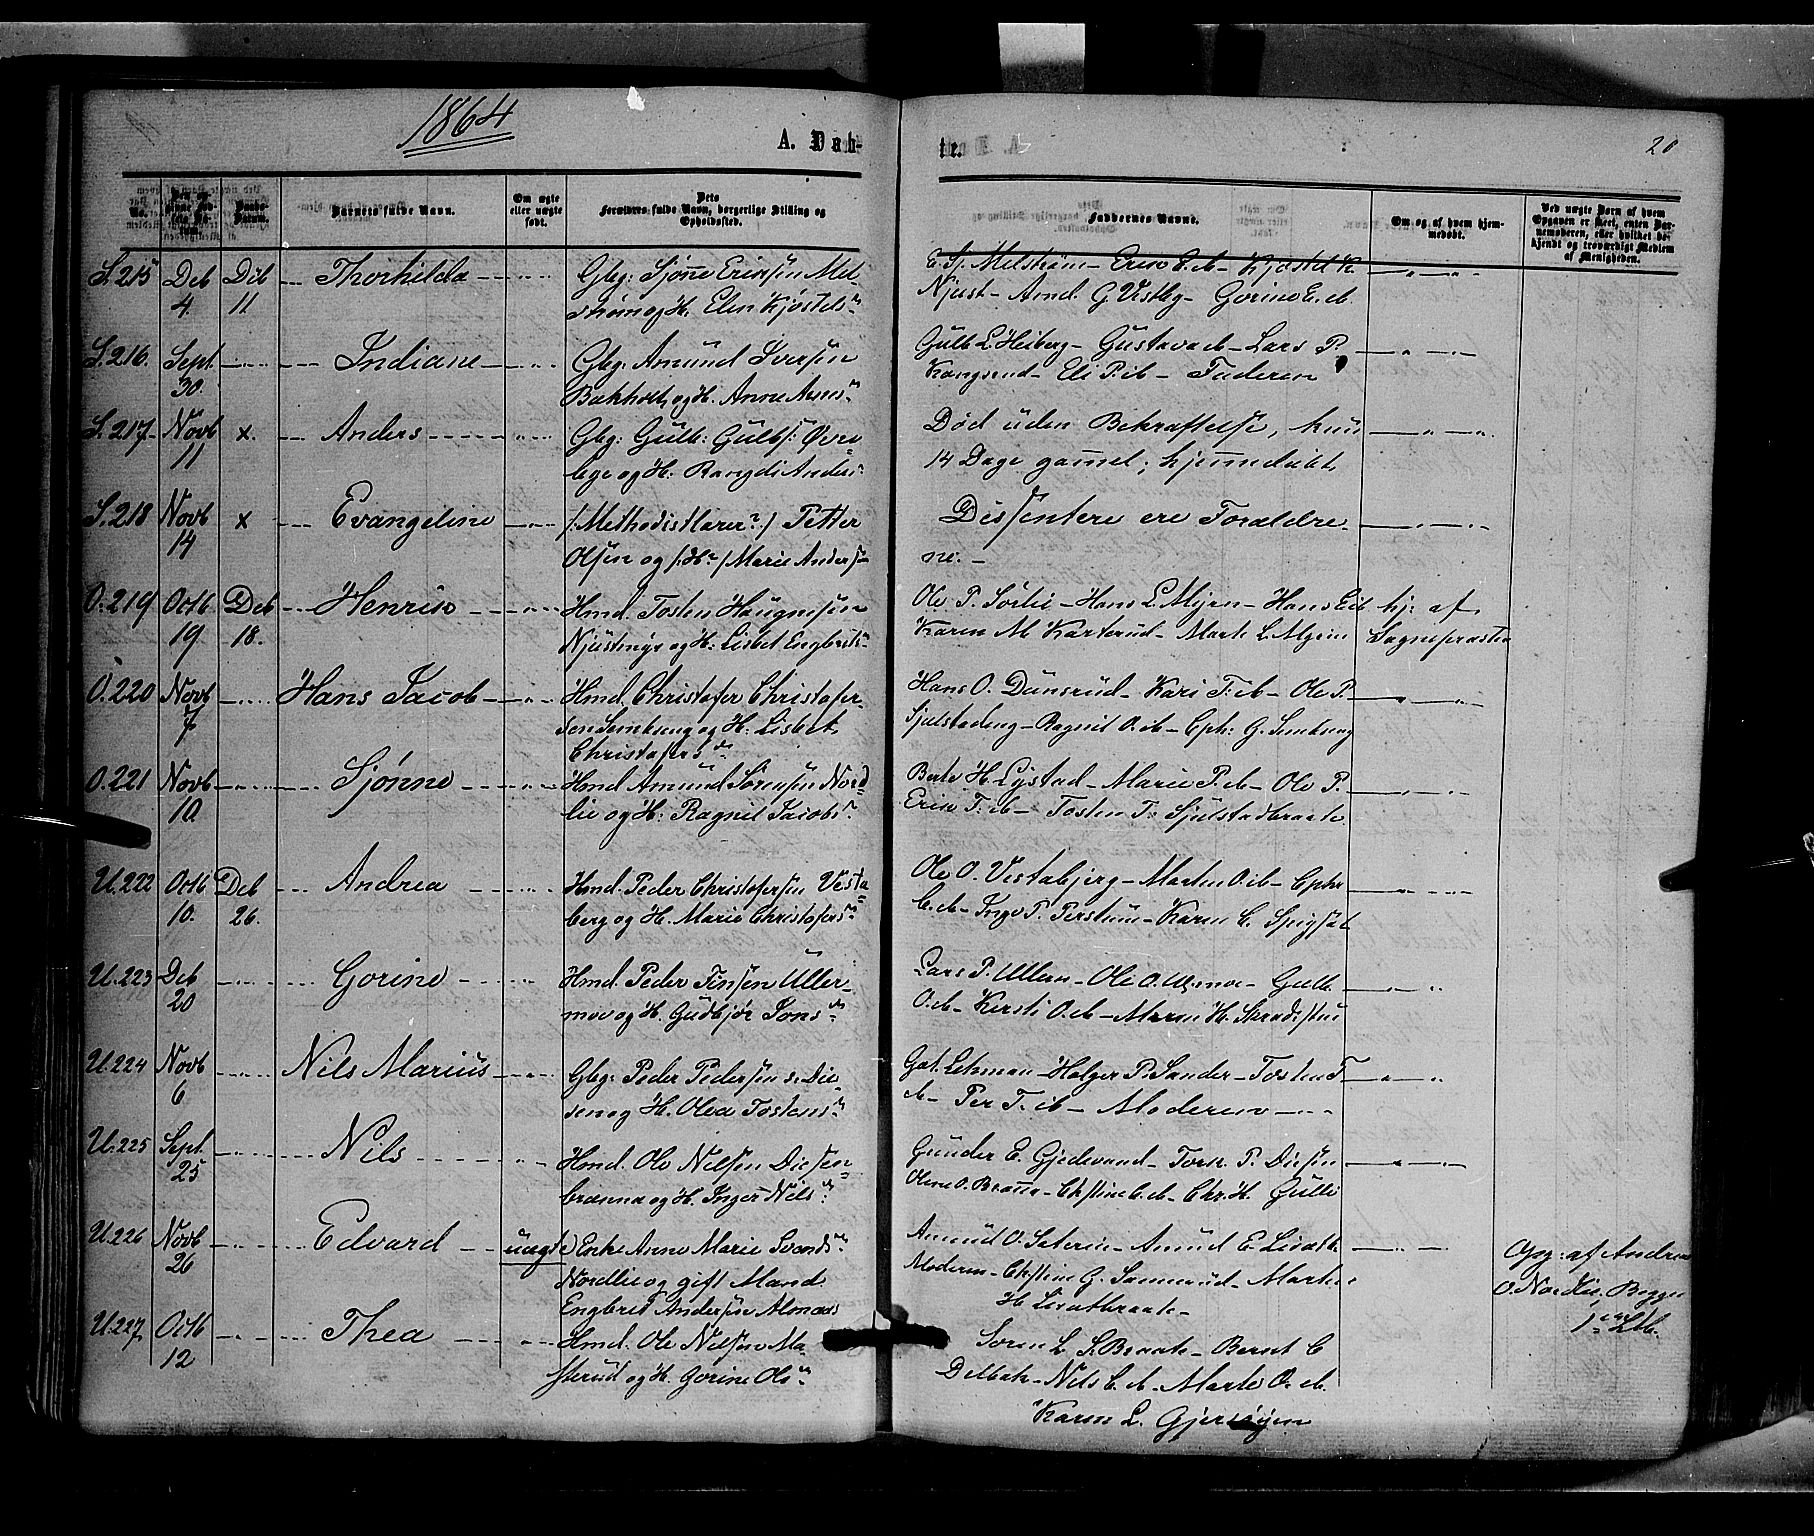 1864
A. Døb-
te.
20
No.
Daabs-
Datum.
Barnets fulde Navn.
Om ægte
eller uægte
født.
Dets
Forældres fulde Navn, borgerlige Stilling og
Opholdssted.
Faddernes Navne.
Om og af hvem hjem-
medøbt.
Ved uægte Børn af hvem
Opgaven er skeet, enten Bar-
nemoderen, eller hvilket be-
kjendt og troværdigt Medlem
af Menigheden.
S. 215 Deb 4. Dcb 11 Thorhilda Gbg: Sjønne Eriksen Mel-
strøm og H. Elen Kjøstels
E. Sj. Melstrøm - Erik E. ib - Kjøstel K.
Njust - Amd. G. Vestby - Gorine E. ib.
S. 216. Sept 30. Indiane Gbg: Amund Iversen
Bakholt, og H. Anne Arnes
Gulb. L. Heiberg - Gustava ib - Lars P.
Kongsrud - Eli P. ib - Faderen
S. 217 Novb 11 x. Anders Gbg: Gulb: Gulbs: Øvre-
og H. Rangdi Anders
Død uden Bekræftelse, kun
14 Dage gammel; hjemmedøbt
S. 218 Novb 14 x Evangeline /:Methodistlærer:/ Petter
Olsen og /:H:/ Marie Anders-
Dissentere ere Forældre-
ne. -
O. 219 Octb 19 Deb 18. Henrik Hmd. Tosten Haagensen
Njustmyr og H. Lisbet Engbrets
Ole P. Sørlie - Hans L. Myrn - Hans E. ib
Karen M. Karterud - Marte L. Myrn
hj: af
Sognepræsten
O. 220 Novb 7 Hans Jacob Hmd. Christofer Christofer-
sen Semkoug og H. Lisbet
Christofers
Hans O. Dunsrud - Kari T. ib - Ole P.
Sjulstadeng - Ragnil O. ib - Cph: G. Semkoug
O. 221 Novb 10 Sjønne Hmd Amund Sørensen Nord-
lie og H. Ragnil Jacobs
Berte H. Lystad - Marie P. ib - Ole P.
Erik T. ib - Tosten T. Sjulstadbraate
U. 222 Octb 10. Deb 26. Andrea Hmd. Peder Christofersen Vesta-
berg og H. Marie Christofers
Ole O. Vestabjerg - Marten O. ib - Cphr
C. ib - Inge P. Perstuen - Karen C. Spigset
U. 223 Deb 20 Gorine Hmd. Peder Finsen Uller-
moe og H. Gudbjør Jons
Lars P. Ullern - Ole O. - Gulb.
O. ib - Kersti O. ib - Maren H.
U. 224 Novb 6 Nils Marius Gbg: Peder Pedersen s. Die-
sen og H. Olea Tostens
Gat. Lehman - Holger P. Sander - Tosten T.
ib - Per T. ib - Moderen
U. 225 Sept. 25 Nils Hmd. Ole Nilsen Diesen-
brænna og H. Inger Nils
Gunder E. Gjedevand - Tork. P. Diesen
Olene O. Brænna - Chrstine C. ib - Chr. H. Gulli
U. 226 Novb 26 Edvard uægte) Enke Anne Marie Svends
Nordlie og gift Mand
Engbret Andersen Almaas
Amund O. Sætern - Amund E.
Moderen - Chrstine G. Sannerud - Marte
H.
Opg: af Andrea
O. Nordlie, Begges
1ste Lb.
U. 227 Octb 12 Thea Hmd. Ole Nilsen Ma-
sterud og H. Gorine Ols
Soren L. S. Braate - Bernt C
Delbak - Nils C. ib - Marte O. ib.
Karen L. Gjersøyen